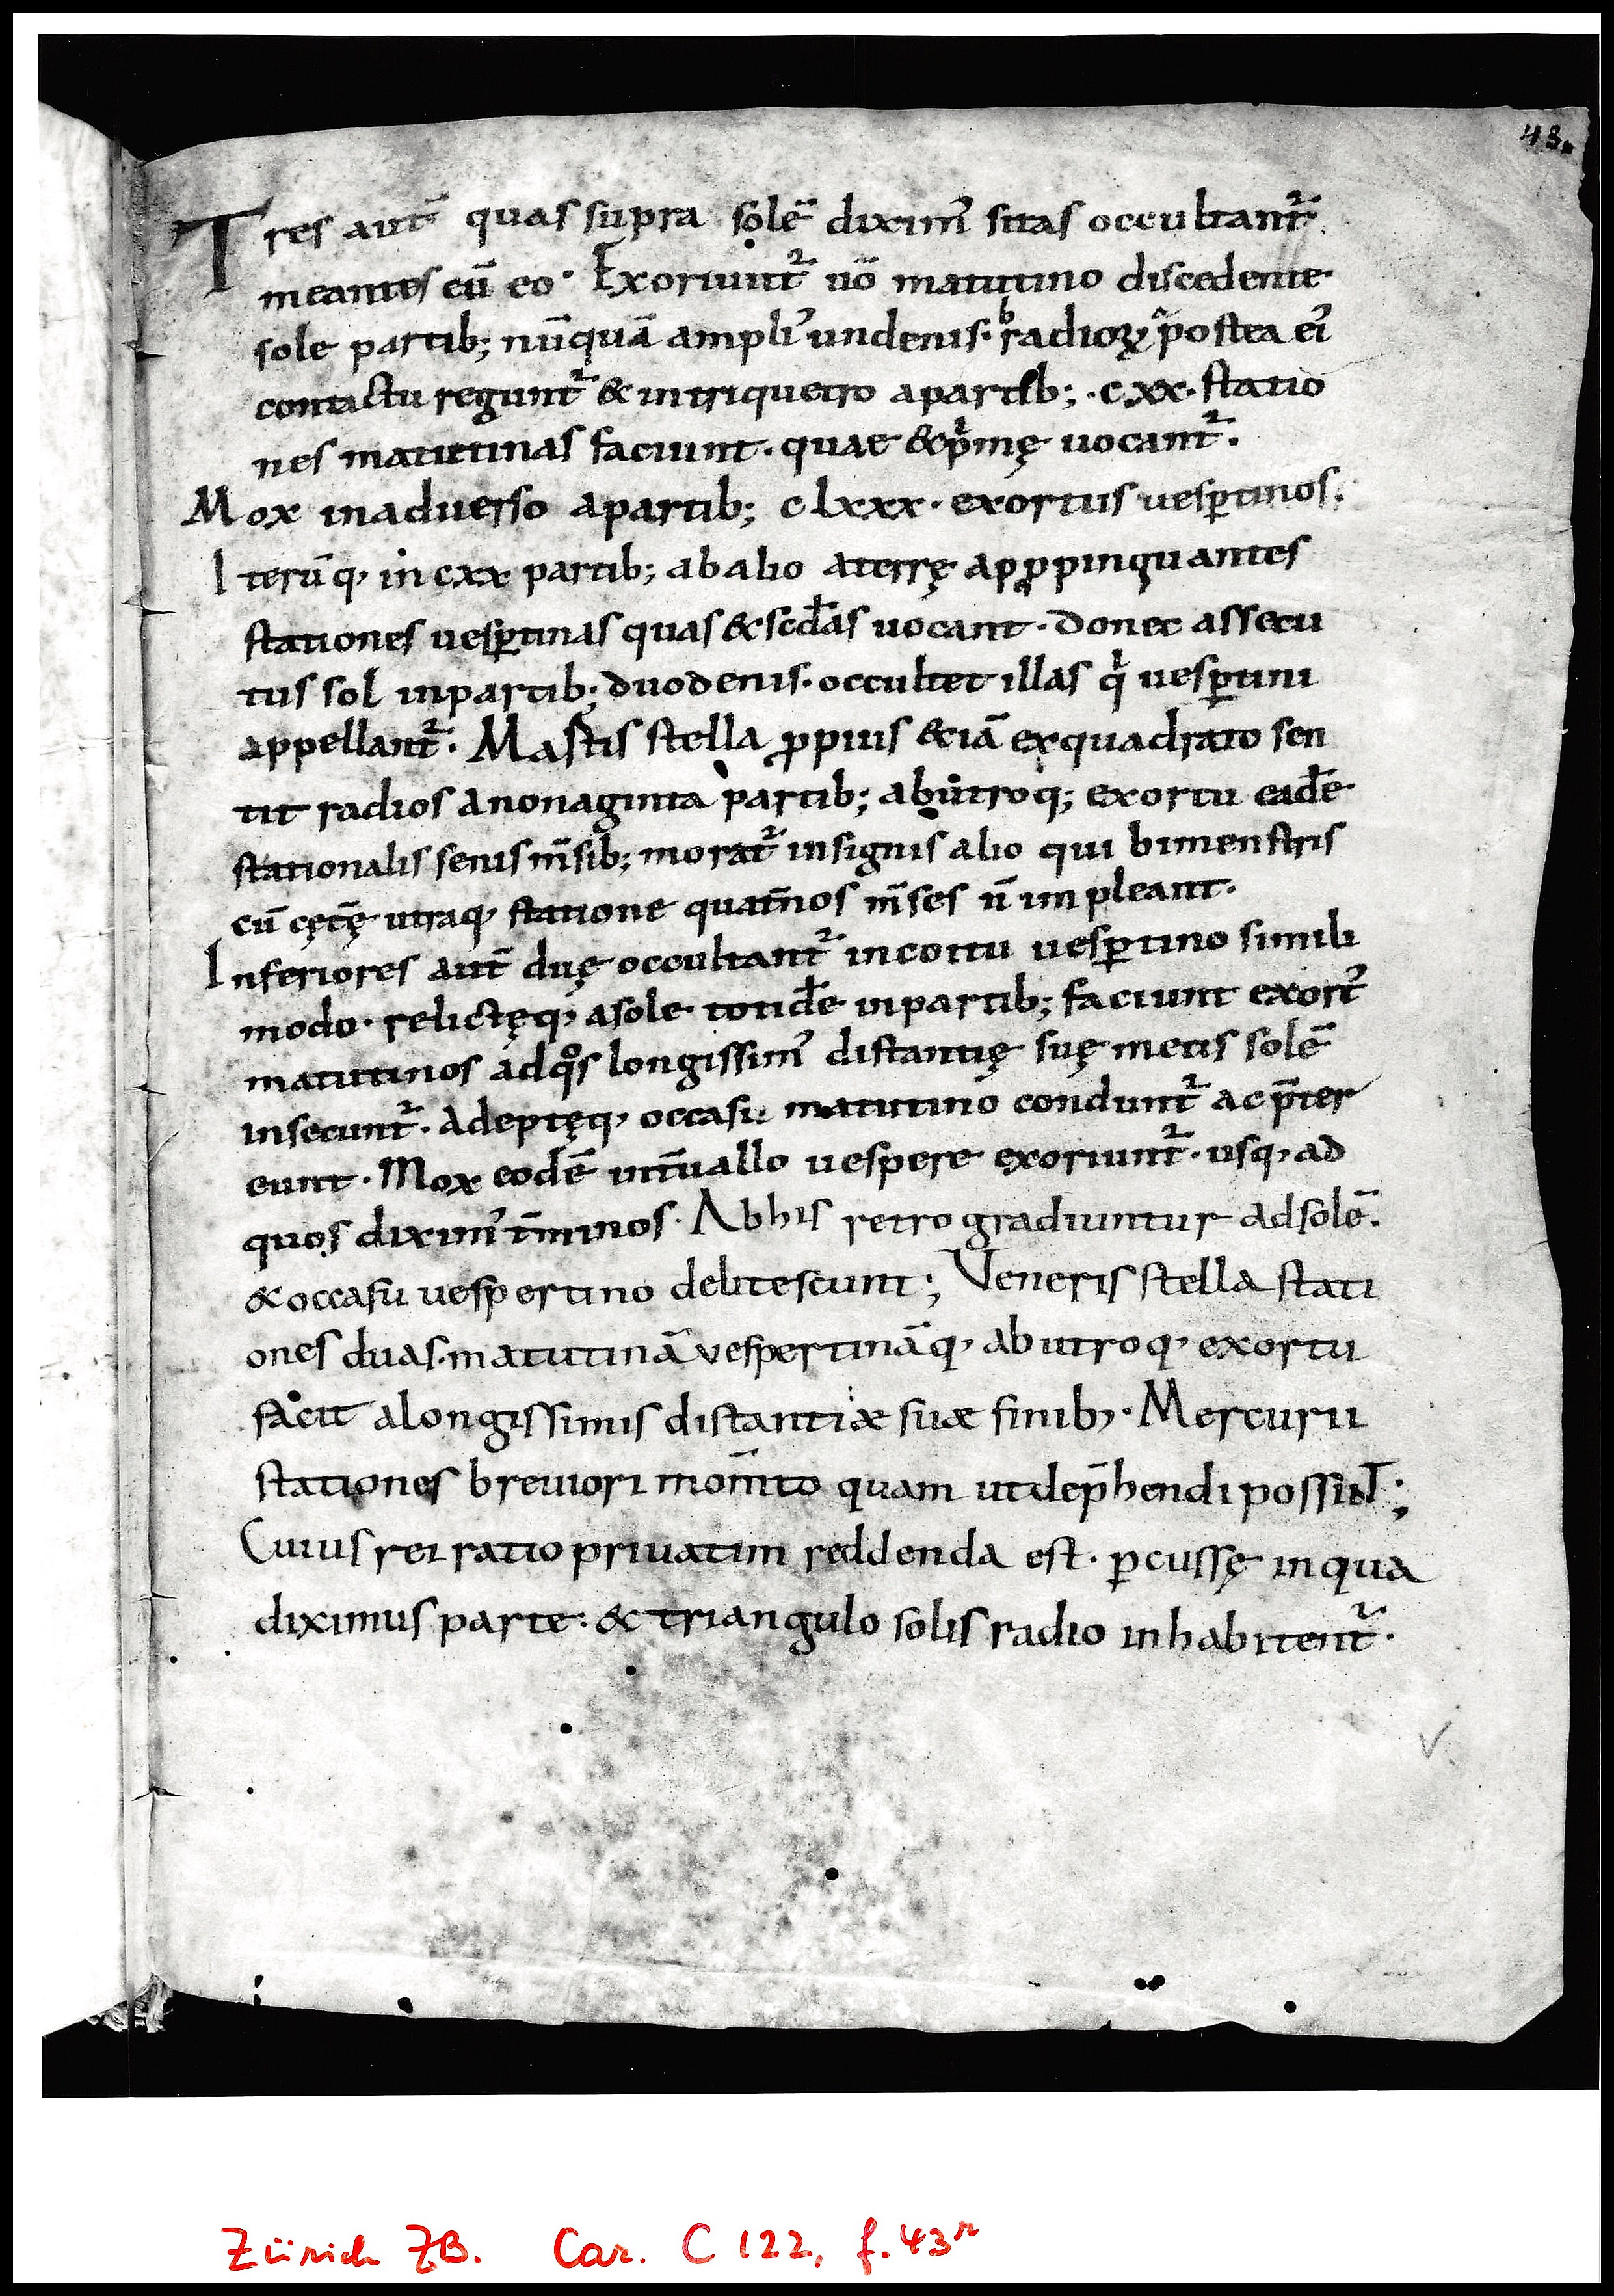 43.
Tres aut̄ quas supra solē diximꝰ sitas occultant᷑.
meantes cū eo. Exoriunt᷑ uō matutino discedente
sole partib; nūquā ampliꝰ undenis. radioꝝ postea eiꝰ
contactu regunt᷑ & intriquetro apartib; . cxx. statio
nes matutinas faciunt. quae & pͥmę uocant᷑.
Mox inaduerso apartib; clxxx. exortus uesꝑtinos.
Iterūq, in cxx partib; abalio aterrę apꝓpinquantes
stationes uesꝑtinas quas & scd̄as uocant. donec assecu
tus sol inpartib; duodenis. occultet illas qͥ uesꝑtini
appellant᷑. Mastis stella ꝓpius &iā exquadrato sen
tit radios anonaginta partib; abutroq; exortu eadē
stationalis senis m̄sib; morat᷑ insignis alio qui bimenstris
cū cęt̄ę utraq, statione quat̄nos m̄ses n̄ impleant.
Inferiores aut̄ duę occultant᷑ incoitu uesꝑtino simili
modo. relictęq, asole totidē inpartib; faciunt exortꝰ
matutinos adqͦs longissimꝰ distantię suę metis solē
insecunt᷑. Adeptęq, occasu matutino condunt᷑ ac p̄ter
eunt. Mox eodē int̄uallo uespere exoriunt᷑. usq, ad
quos diximꝰ t̄minos. Abhis retrogradiuntur adsolē.
& occasu uespertino delitescunt; Veneris stella stati
ones duas. matutinā vespertināq, abutroq, exortu
facit alongissimis distantiæ suæ finib,. Mercurii
stationes breuiori mom̄to quam utdep̄hendi possint;
Cuius rei ratio priuatim reddenda est. ꝑcussę inqua
diximus parte. & triangulo solis radio inhabitent᷑.
Zürich ZB. Car. C 122, f. 43r